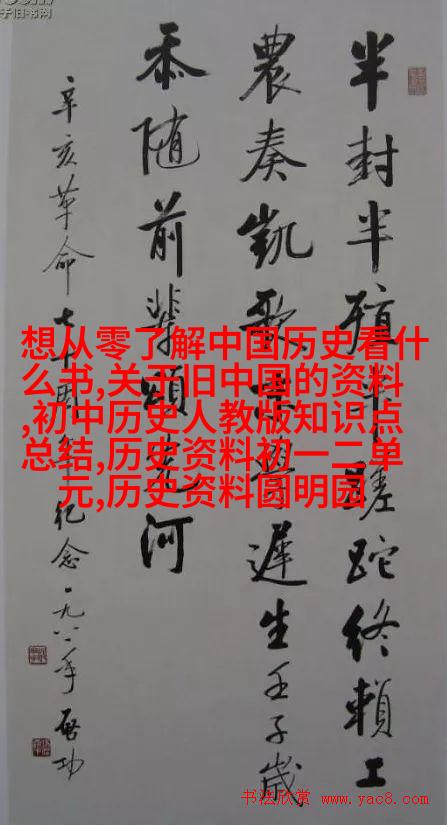 想从零了解中国历史看什
么书,关于旧中国的资料
,初中历史人教版知识点
总结,历史资料初一二单
元,历史资料圆明园
半封半殖半蹉跎终賴工
農奏凱歌學遲生壬子歲
忝随前輩頌先河
辛亥革命七十周年纪念一九八一年启功
子旧书网
书法欣赏 www.yac8.com